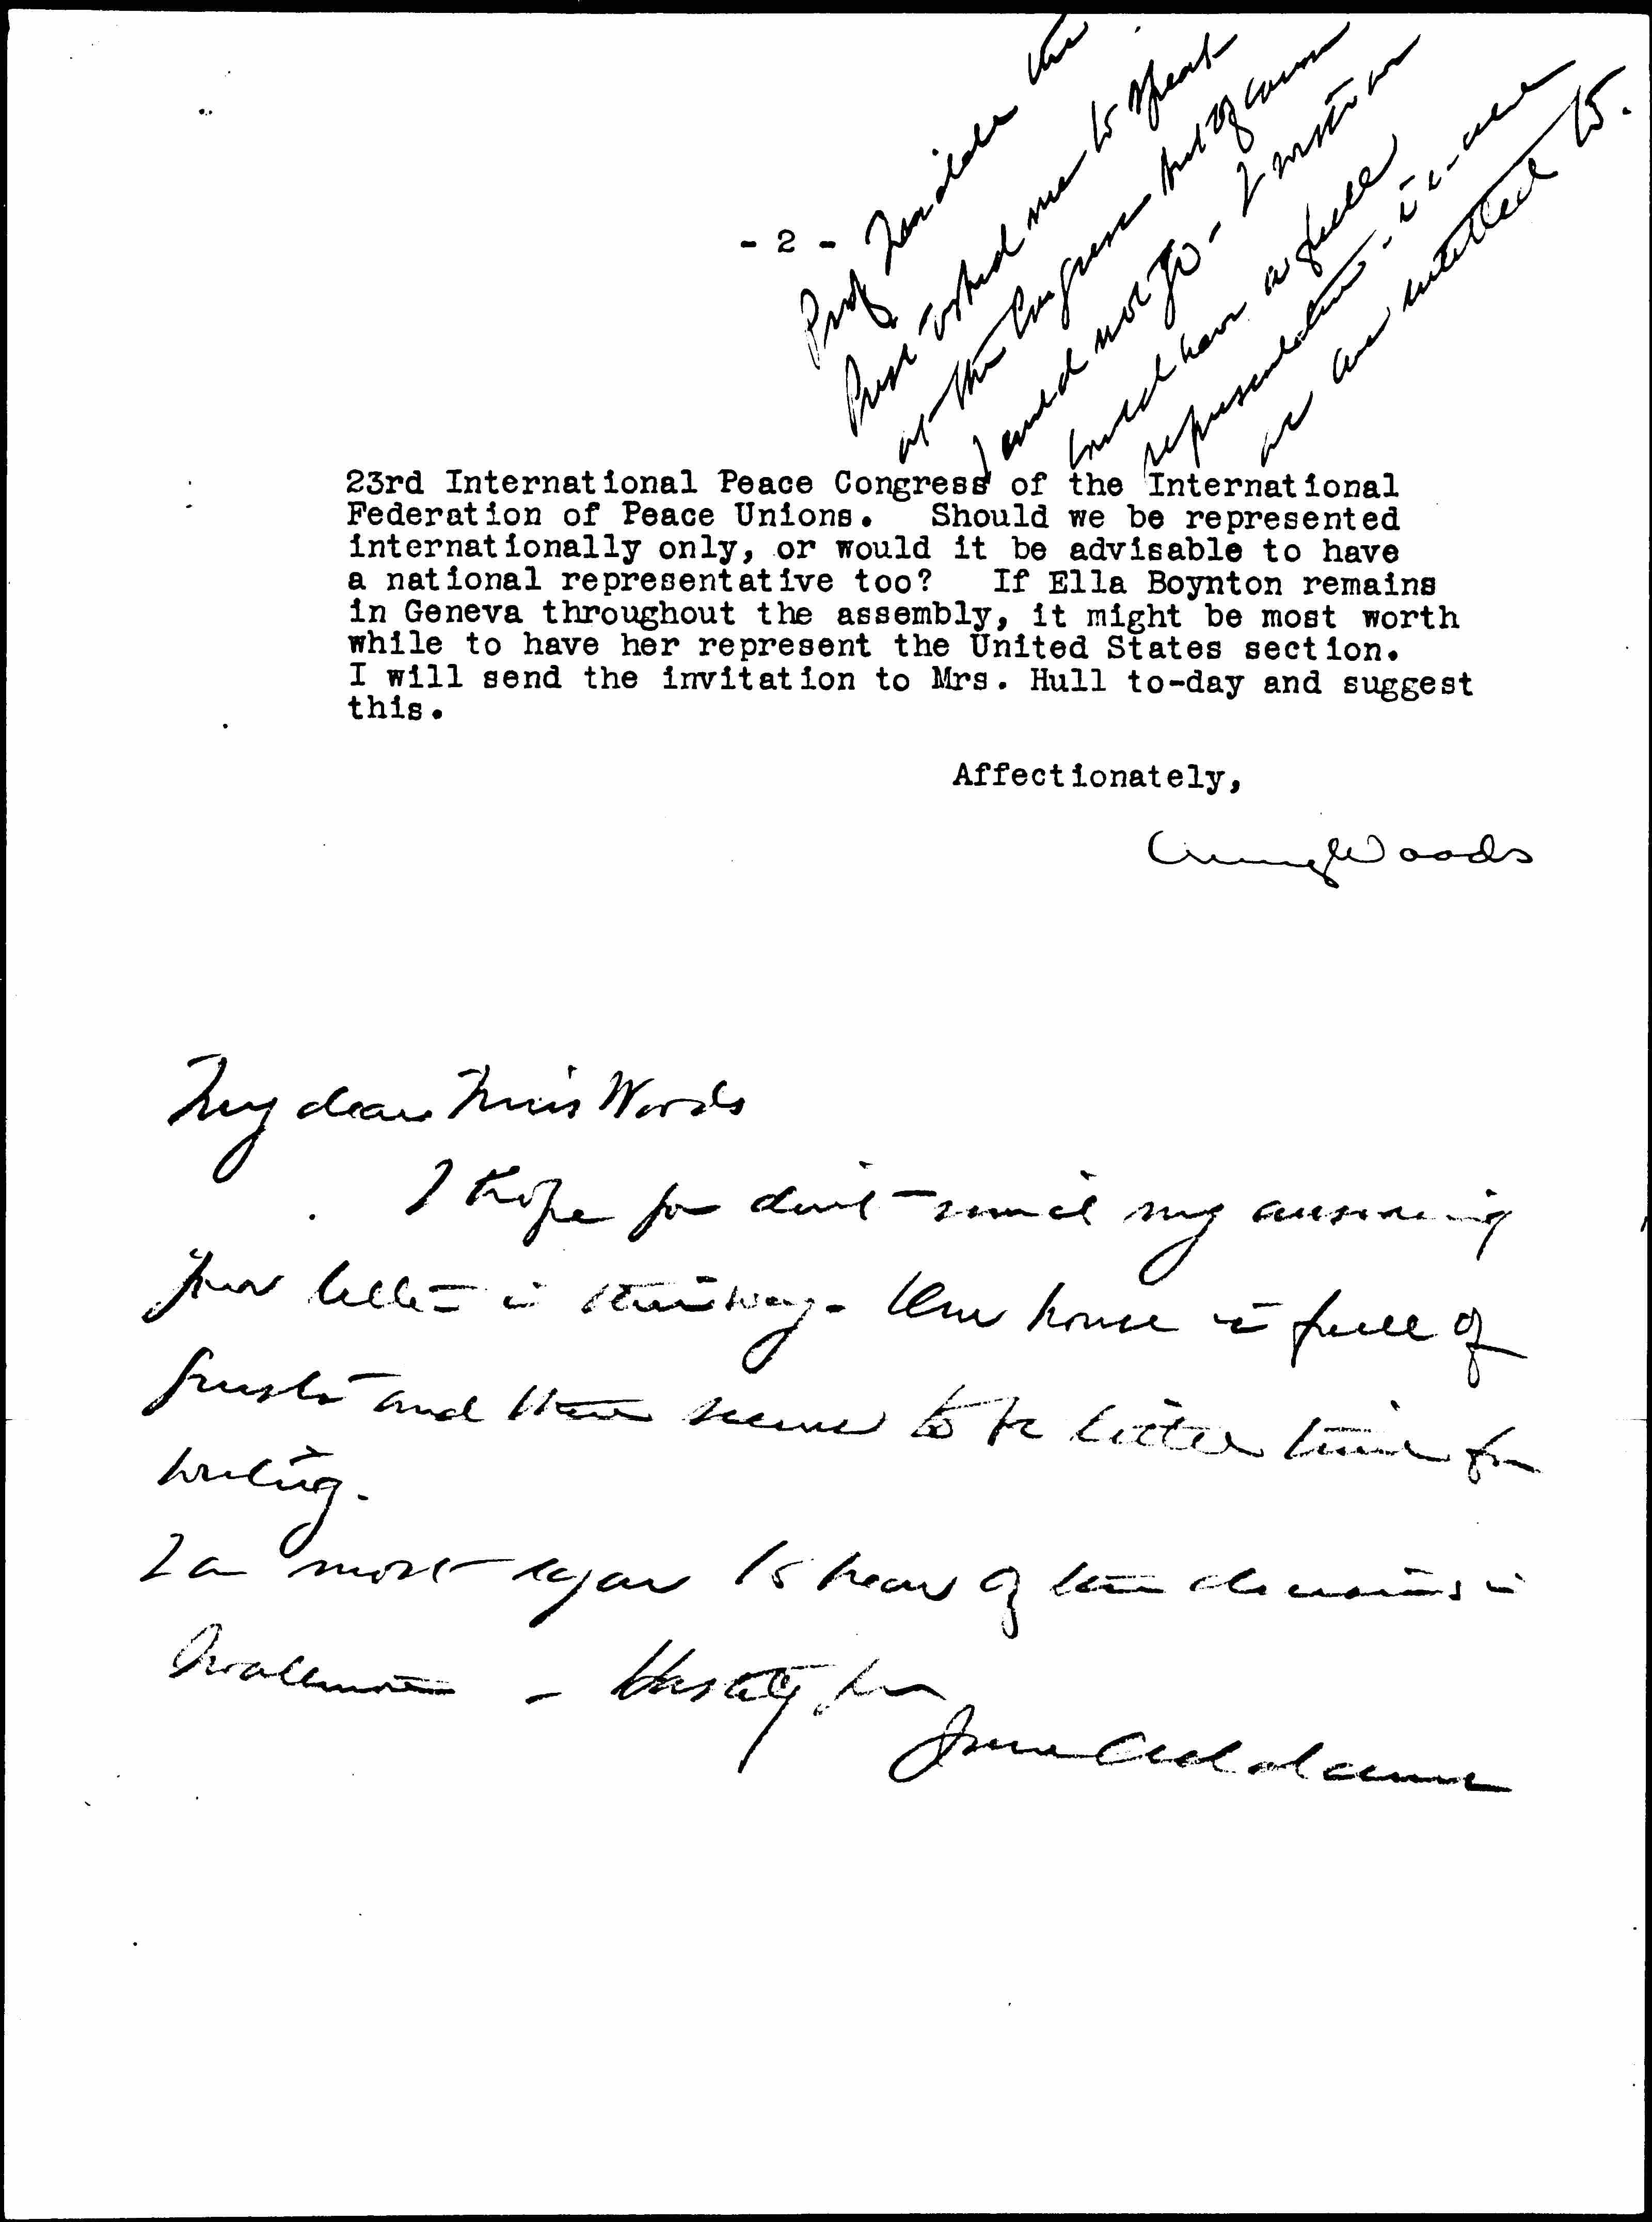 - 2 -
Prof Quidde the
Pres asked me to speak
at the Congress but of course
I could not go - I
should have a full
representation - i.e. - all
we are entitled to.
23rd International Peace Congress of the International
Federation of Peace Unions. Should we be represented
internationally only, or would it be advisable to have
a national representative too? If Ella Boynton remains
in Geneva throughout the assembly, it might be most worth
while to have her represent the United States section.
I will send the invitation to Mrs. Hull to-day and suggest
this.
Affectionately,
Amy Woods
My dear Miss Woods
I hope you don't mind my answering
your letter in this way - Our house is full of
guests and there seems to be little time for
writing.
I am most eager to hear of the
- Hastily yrs
Jane Addams